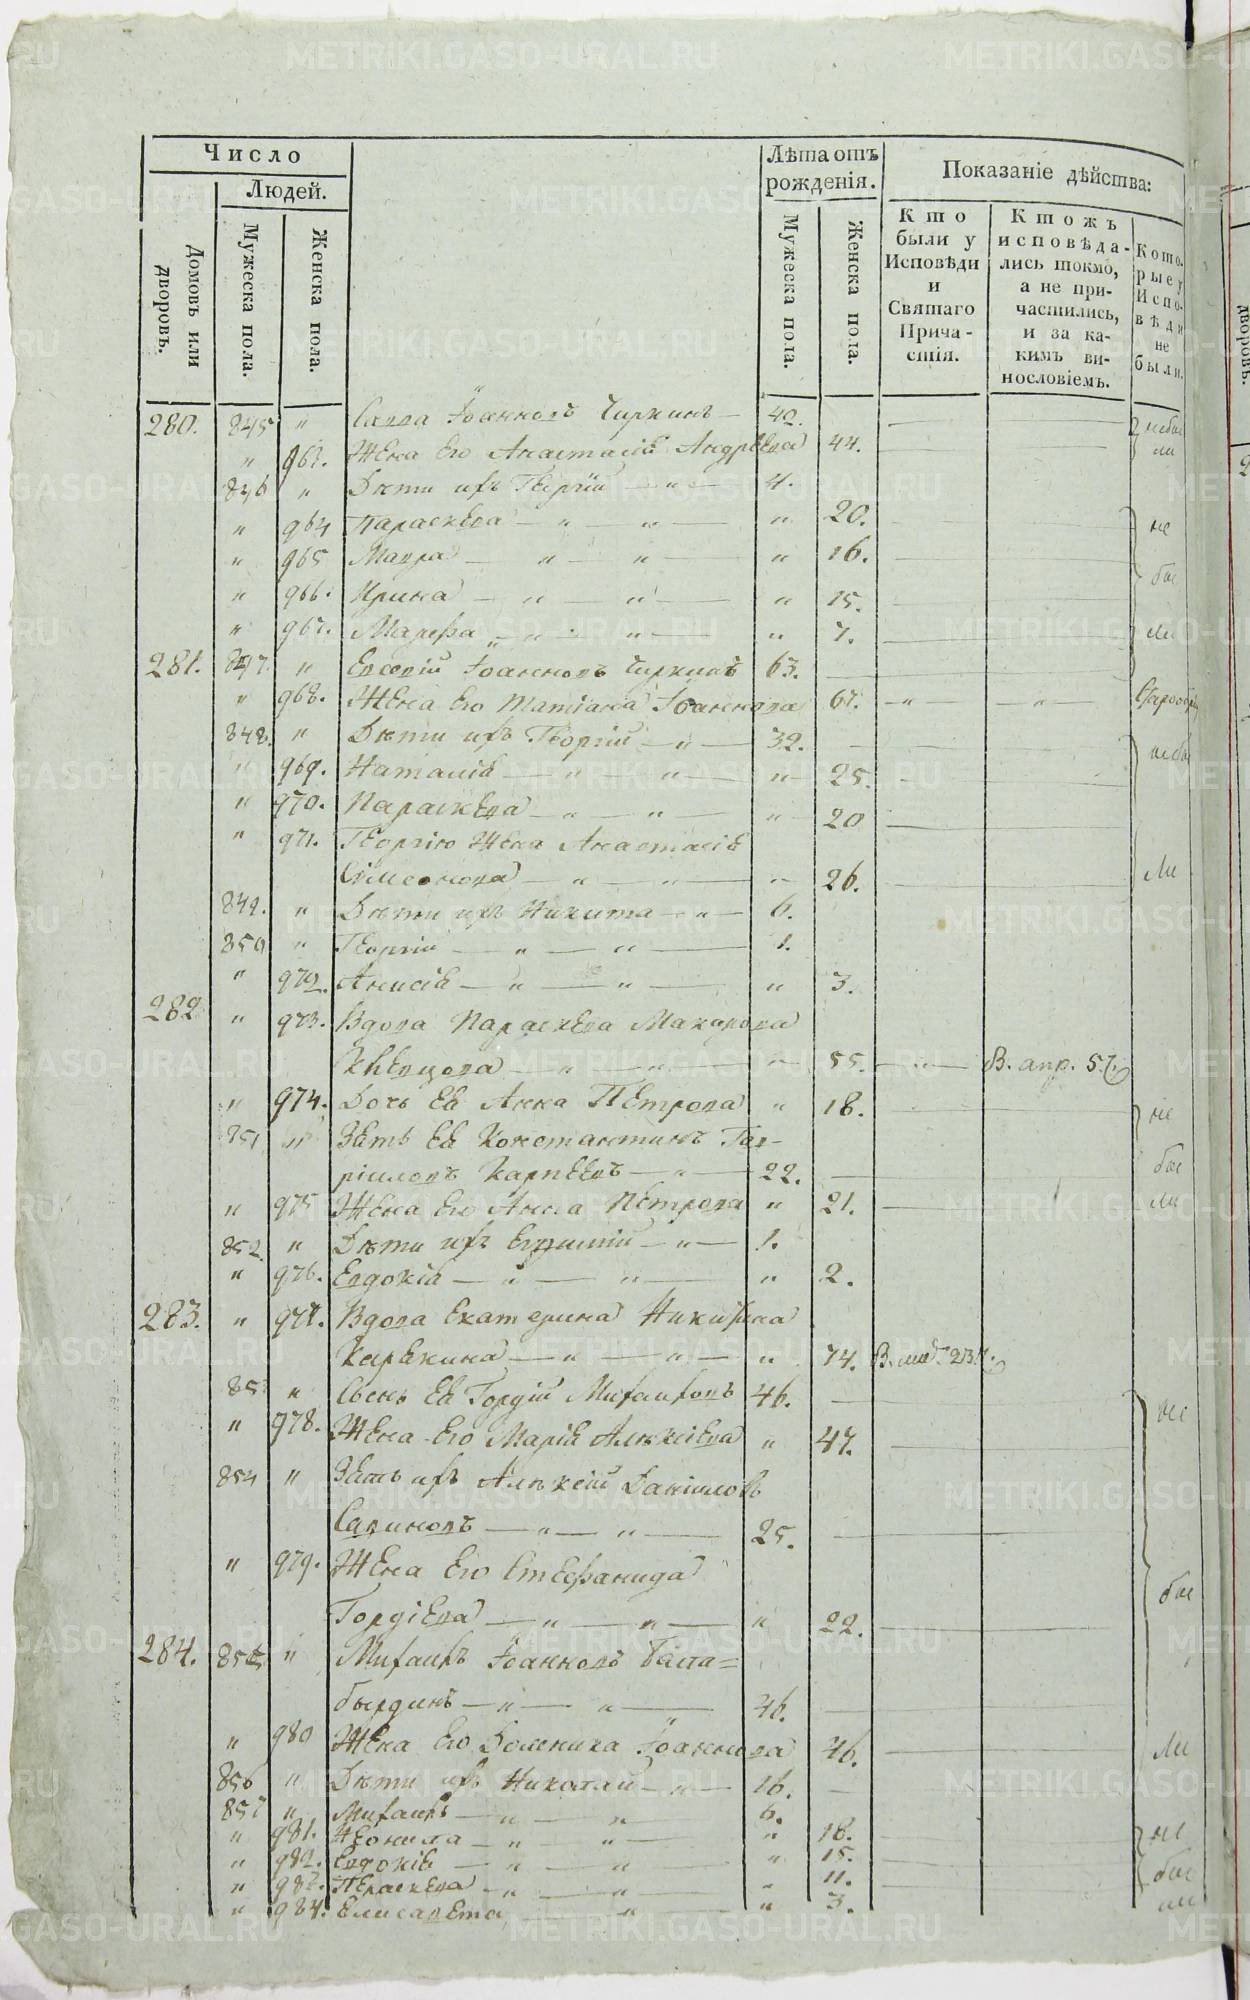 Число
Людей.
Домовъ или дворовъ.
Мужеска пола.
Женска пола.
Лѣта отъ рожденія.
Мужеска пола.
Женска пола.
Показаніе дѣйства:
Кто были у Исповѣди и Святаго Причастія.
Ктожъ исповѣдались токмо, а не причастились, и за какимъ винословіемъ.
Которые у Исповѣди не были.
280. 845 " Савва Іоанновъ Чиркинъ — 42. небы
" 963. Жена Его Анастасія Андрѣева 44. ли
846 " Дѣти ихъ Георгій — " — 4.
" 964 Параскева — " — " — " 20. не
" 965 Мавра — " " — " 16. бы
" 966. Ирина — " — " — " 15.
" 967. Марфа — " — " — " 7. ли
281. 847. " Евсевій Іоанновъ Чиркинъ 63.
" 968. Жена Его Татіана Іоаннова 67. — " — — " —
848. " Дѣти ихъ Георгій — " — 32. небы
" 969. Наталія — " — " — " 25.
" 970. Параскева — " — " — " 20
" 971. Георгію Жена Анастасія
Сімеонова — " — " — " 26. ли
849. " Дѣти ихъ Никита — " — 6.
850 " Георгій — " — " — 1.
" 972. Анисія — " — " — " 3.
282 " 973. Вдова Параскева Макарова
— " — " — " 55. — " — В. апр. 5.
" 974. Дочь Ея Анна Петрова " 18. не
851 " Зять Ея Константинъ Гав-
ріиловъ Карпеевъ — " — 22. бы
" 975 Жена Его Анна Петрова " 21. ли
852 " Дѣти ихъ — " — 1.
" 976. Евдокія — " — " — " 2.
283. " 977. Вдова Екатерина
— " — " — " 74.
85 " Сынъ Ея Гордій Михаиловъ 46. не
" 978. Жена Его Марія Алексіева " 47.
854 " Зять ихъ Алексій Даніиловъ
Савиновъ — " — " — 25.
" 979. Жена Его Стефанида
Гордіева — " — " — " 22. бы
284. 855 " Михаилъ Іоанновъ Бала=
бырдинъ — " — " — 46.
" 980 Жена Его Домника Іоаннова 46. ли
856 " Дѣти ихъ Николай — " — 16.
857 " Михаилъ — " — " 6.
" 981. Неонила — " — " — " 18. не
" 982. Евдокія — " — " — " 15. бы
" 983. Параскева — " — " — " 11.
" 984. Елисавета — " — " 3. ли
METRIKI.GASO-URAL.RU